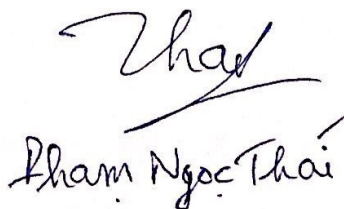 Thai
Phạm Ngọc Thái